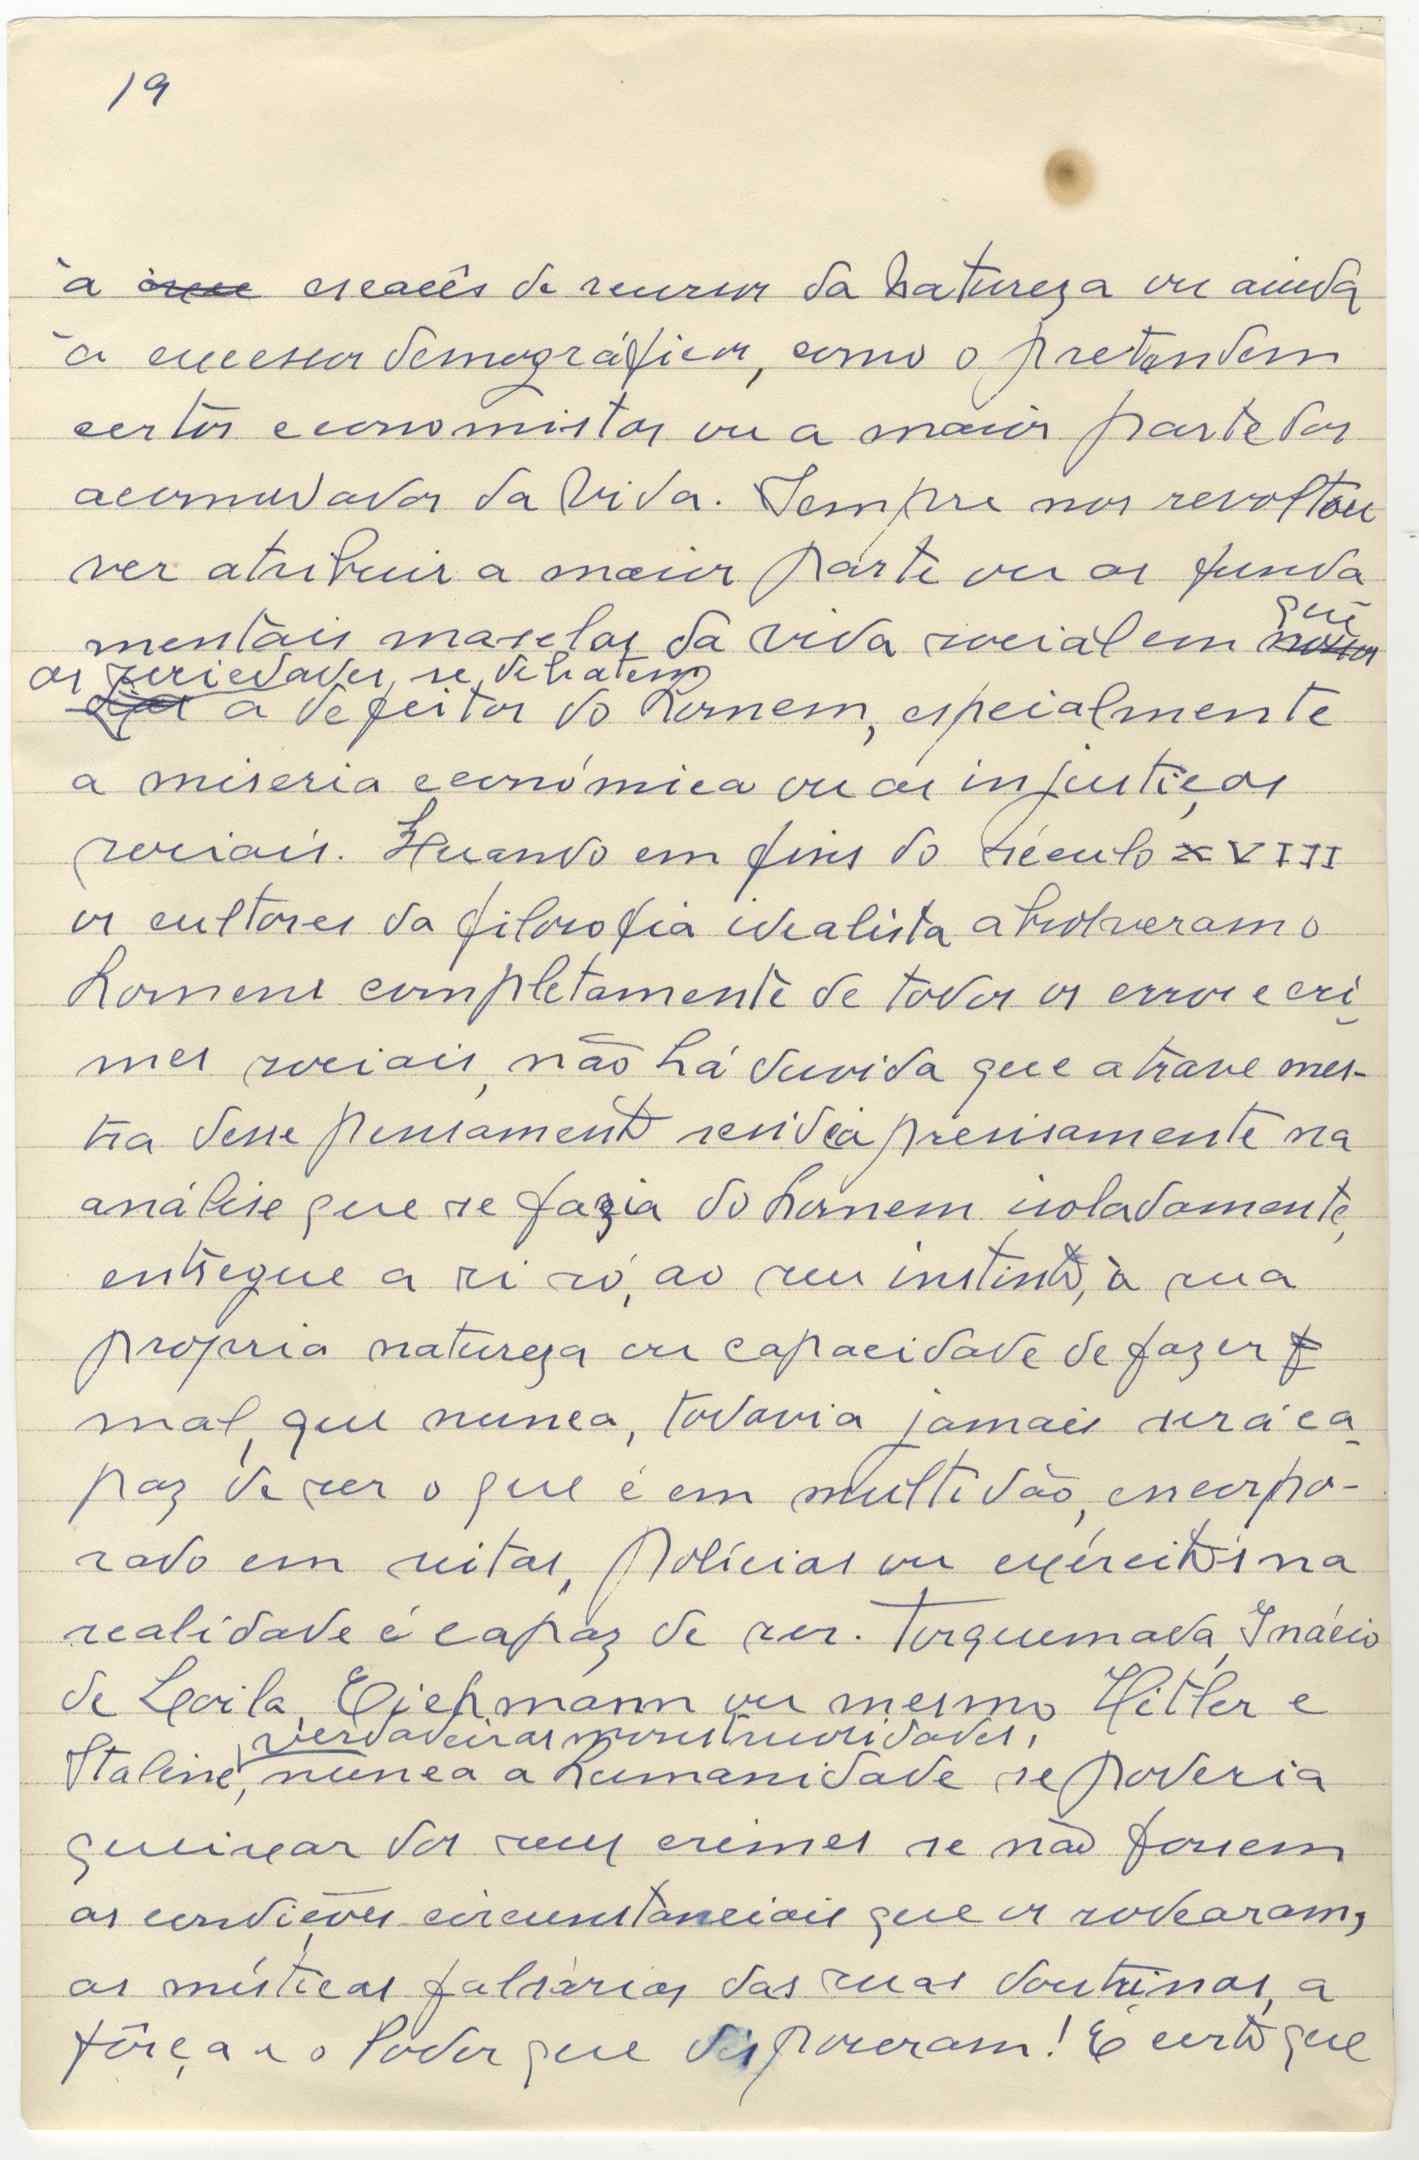 19
à escacês de recursos da Natureza ou ainda
a excessos demográficos, como o pretendem
certos economistas ou a maior parte dos
acomodados da Vida. Sempre nos revoltou
ver atribuir a maior parte ou as funda
mentais mazelas da vida social em que
as sociedades se debatem
a defeitos do homem, especialmente
a miseria económica ou as injustiças
sociais. Quando em fins do século XVIII
os cultores da filosofia idealista absolveram o
homem completamente de todos os erros e cri
mes sociais, não há duvida que a trave mes-
tra desse pensamento residia precisamente na
análise que se fazia do homem isoladamente,
entregue a si só, ao seu instinto, à sua
propria natureza ou capacidade de fazer
mal, que nunca, todavia jamais será ca
paz de ser o que é em multidão, encorpo-
rado em seitas, polícias ou exércitos na
realidade é capaz de ser. Torquemada, Inácio
de Looila, Eichmann ou mesmo Hitler e
verdadeiras monstruosidades,
Staline, nunca a humanidade se poderia
queixar dos seus crimes se não fossem
as condições circunstanciais que os rodearam,
as místicas falsárias das suas doutrinas, a
fôrça e o Poder que disposeram! É certo que